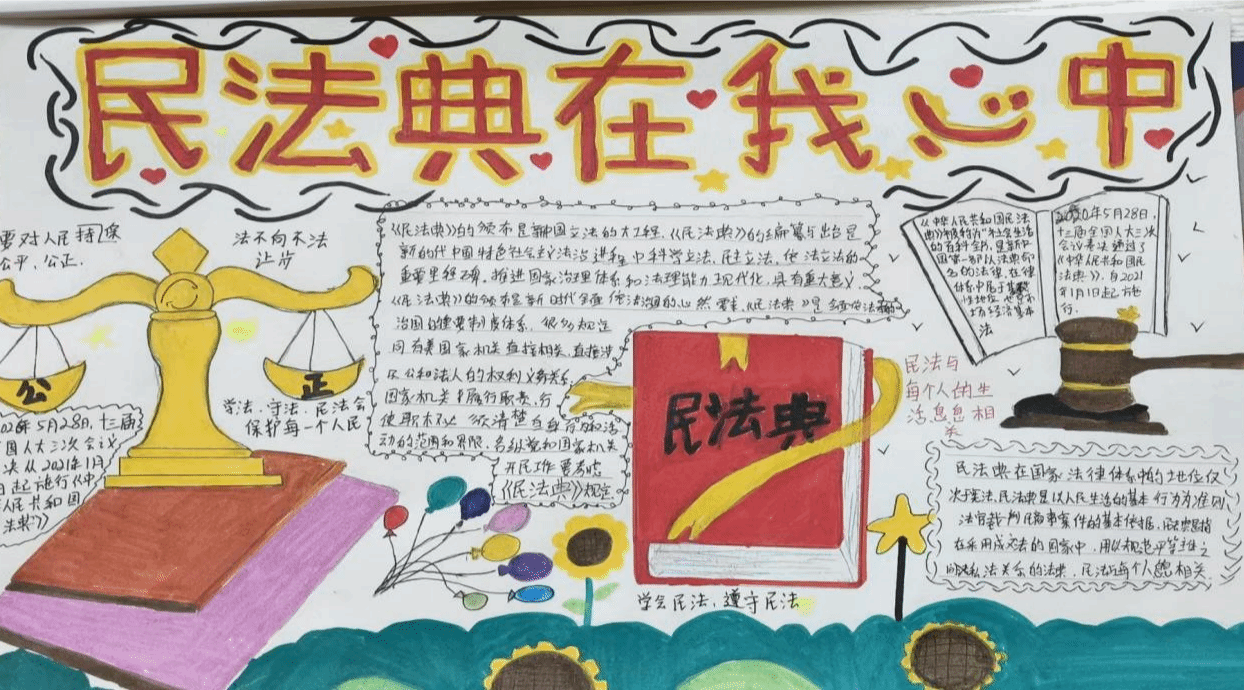 民法典在我心中
要对人民持保
公平、公正.
法不向不法
让步
公
正
学法、守法、民法会
保护每一个人民
2020年5月28日,十三届
国人大三次会议
决从2021年1月
日起施行《中
人民共和国
法典》
《民法典》的颁布是新中国立法的大工程,《民法典》的编纂与出台是
新时代中国特色社会主义法治进程中科学立法、民主立法、依法立法的
重要里程碑。推进国家治理体系和法理能力现代化,具有重大意义
《民法典》的颁布是新时代全面依法治国的必然要求,《民法典》是
治国的重要制度体系、很多规定
同有关国家机关直接相关,直接涉
及公和法人的权利义务关系
国家机关履行职责、行
使职权必须清楚自身行为和活
动的范围和界限。各级党和国家机关
开民工作要考虑
《民法典》规定
民法典
学会民法、遵守民法
《中华人民共和国民法
典》被称为“社会生活
的百科全书,是新中
国第一部以法典命
名的法律,在律
体系中居于基础
性地位,也是市
场经济基本
法
2020年5月28日,
十三届全国人大三次
会议表决通过了
《中华人民共和国民
法典》,自2021
年1月1日起施
行.
民法与
每个人的生
活息息相
关
民法典在国家法律体系中的地位仅
次于宪法,民法典是以人民生活的基本行为准则
法官裁判民商事案件的基本依据,
在采用成文法的国家中,用以规范平等主之
间私法关系的法典,民法与每个人息相关.